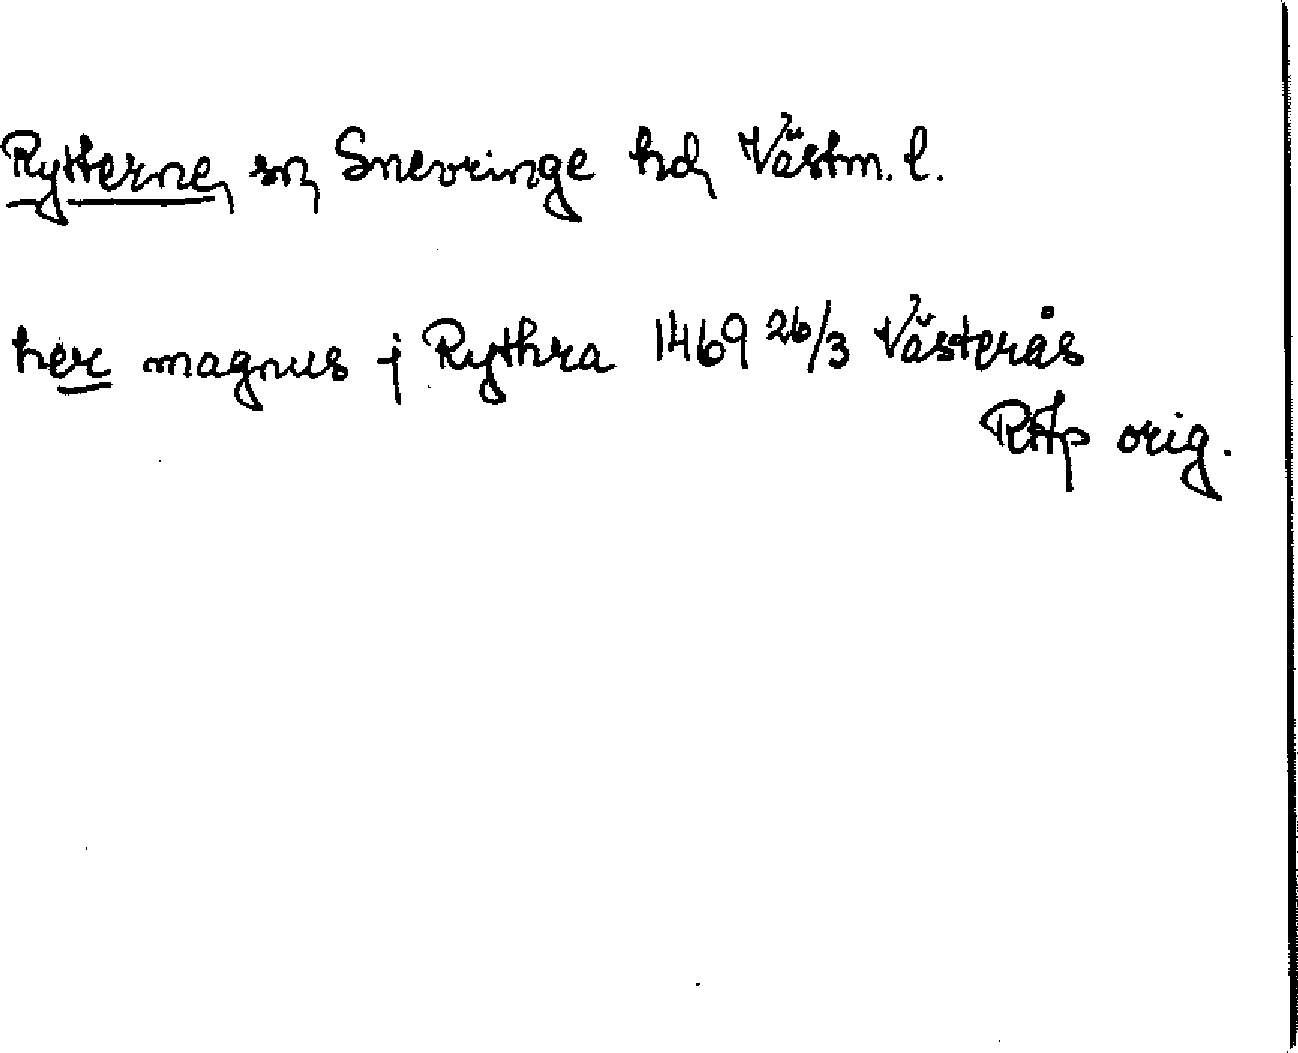 Rytterne, sn, Snevringe hd, Västm. l.
her magnus j Rythra 1469 26/3 Västerås
RAp orig.